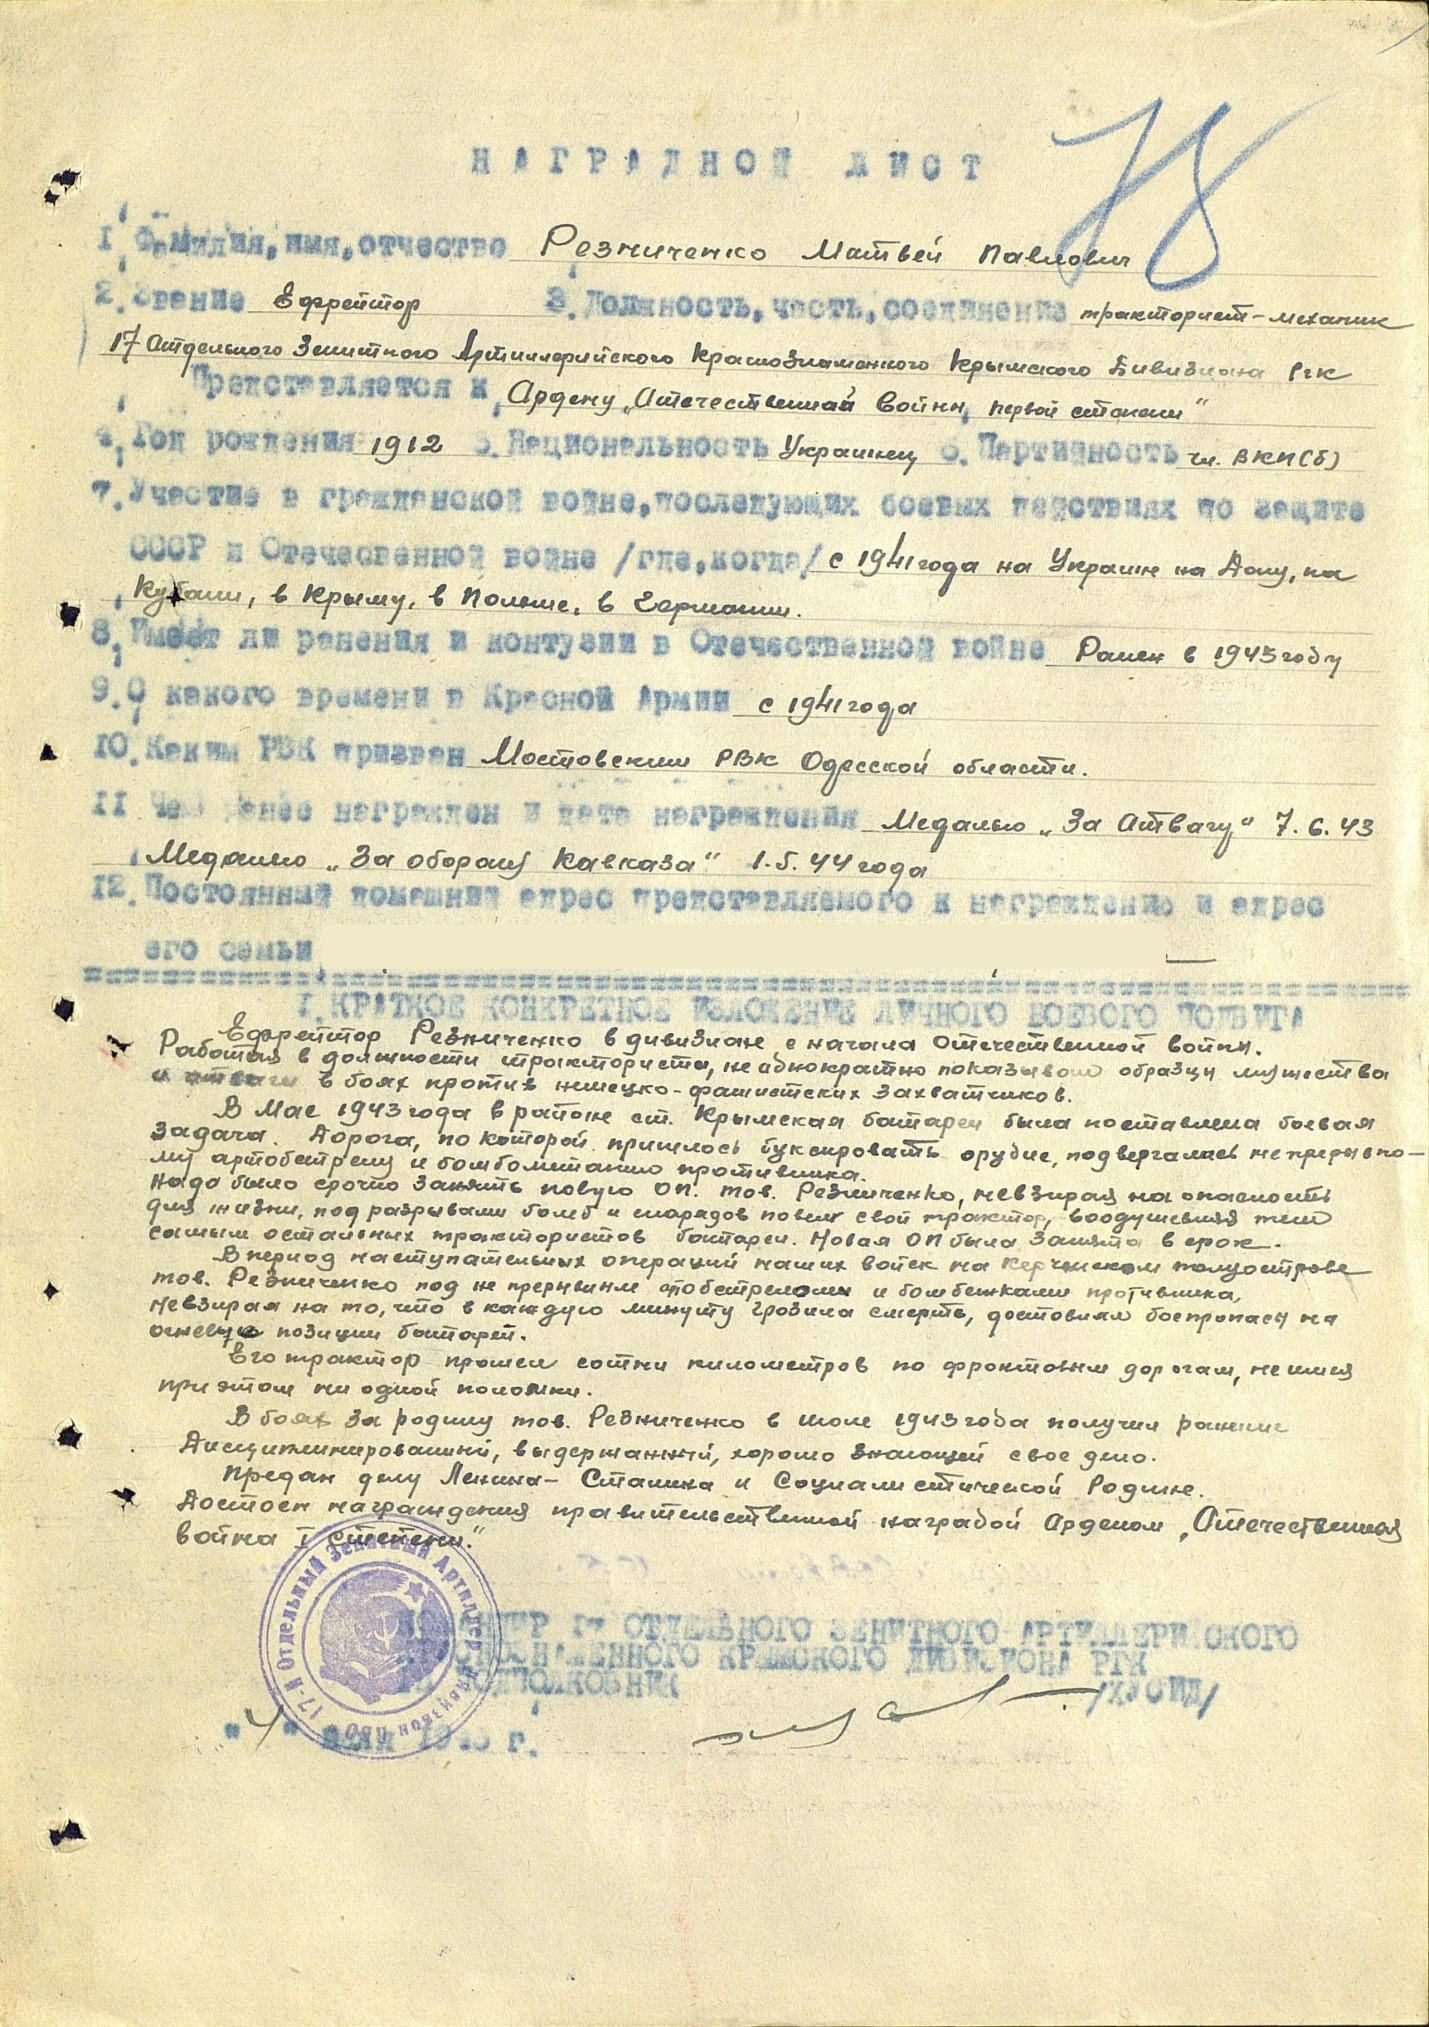 78
НАГРАДНОЙ ЛИСТ
1. Фамилия, имя, отчество Резниченко Матвей Павлович
2. Звание Ефрейтор 3. Должность, часть, соединение тракторист-механик
17 Отдельного Зенитного Артиллерийского Краснознаменного Крымского Дивизиона РГК
Представляется к Ордену „Отечественная война, первой степени"
4. Год рождения 1912 5. Национальность Украинец 6. Партийность чл. ВКП(б)
7. Участие в гражданской войне, последующих боевых действиях по защите
СССР и Отечесвенной войне /где, когда/ с 1941 года на Украине на Дону, на
Кубани, в Крыму, в Польше, в Германии.
8. Имеет ли ранения и контузии в Отечественной войне Ранен в 1943 году
9. С какого времени в Красной Армии с 1941 года
10. Каким РВК призван Мостовским РВК Одесской области.
11 Чем ранее награжден и дата награждения Медалью „За Отвагу" 7.6.43
Медалью „За оборону Кавказа" 1.5.44 года
12. Постоянный домашний адрес представляемого к награждению и адрес
его семьи
1. КРАТКОЕ КОНКРЕТНОЕ ИЗЛОЖЕНИЕ ЛИЧНОГО БОЕВОГО ПОДВИГА
Ефрейтор Резниченко в дивизионе с начала Отечественной войны.
Работая в должности тракториста, не однократно показывал образцы мужества
и отваги в боях против немецко-фашистских захватчиков.
В Мае 1943 года в районе ст. Крымская батареи была поставлена боевая
задача. Дорога, по которой пришлось буксировать орудие, подвергалась непрерывно-
му артобстрелу и бомбометанию противника.
Надо было срочно занять новую ОП. тов. Резниченко, невзирая на опасность
для жизни, под разрывами бомб и снарядов повел свой трактор, воодушевляя тем
самым остальных трактористов батареи. Новая ОП была занята в срок.
В период наступательных операций наших войск на Керченском полуострове
тов. Резниченко под не прерывным обстрелом и бомбежками противника,
невзирая на то, что в каждую минуту грозила смерть, доставлял боеприпасы на
огневую позиции батарей.
Его трактор прошел сотни километров по фронтовым дорогам, не имея
при этом ни одной поломки.
В боях за родину тов. Резниченко в июле 1943 года получил ранение
Дисциплинированный, выдержанный, хорошо знающей свое дело.
Предан делу Ленина-Сталина и Социалистической Родине.
Достоен награждения правительственной наградой Орденом „Отечественная
война I степени."
КОМАНДИР 17 ОТДЕЛЬНОГО ЗЕНИТНОГО АРТИЛЛЕРИЙСКОГО
КРАСНОЗНАМЕННОГО КРЫМСКОГО ДИВИЗИОНА РГК
ПОДПОЛКОВНИК /ХУСИД/
17-й Отдельный Зенитный Артиллер
"4" 1945 г.